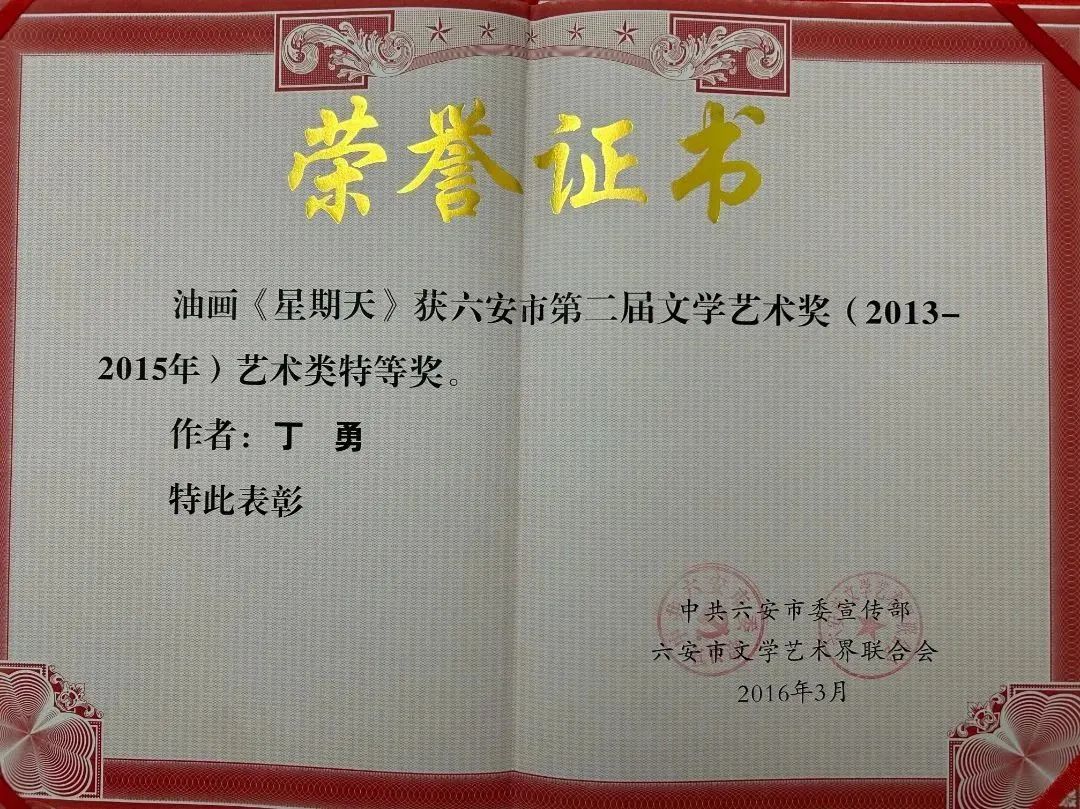 荣誉证书
油画《星期天》获六安市第二届文学艺术奖（2013-
2015年）艺术类特等奖。
作者：丁 勇
特此表彰
中共六安市委宣传部
六安市文学艺术界联合会
2016年3月